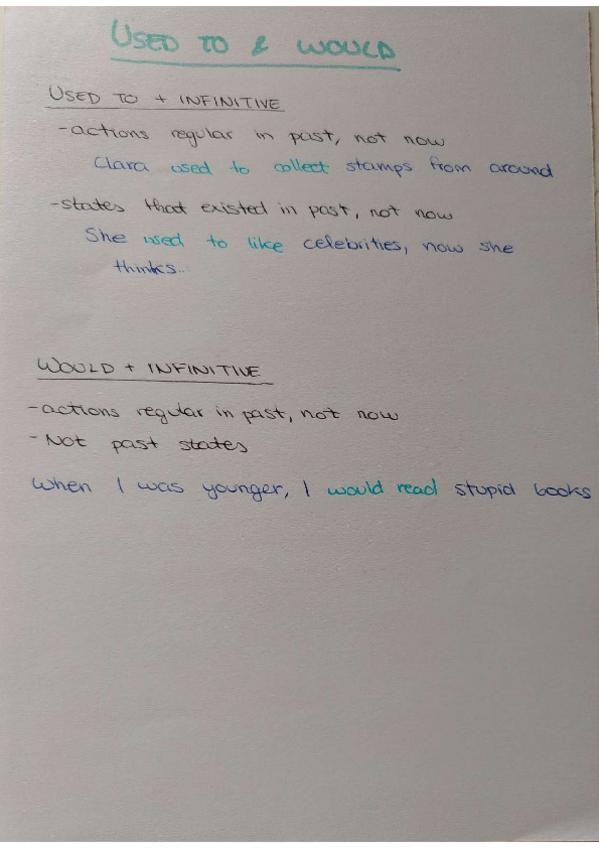 USED TO & WOULD
USED TO + INFINITIVE
-actions regular in past, not now
Clara used to collect stamps from around
-states that existed in past, not now
She used to like celebrities, now she
thinks..
WOULD + INFINITIVE
-actions regular in past, not now
-Not past states
When I was younger, I would read stupid books